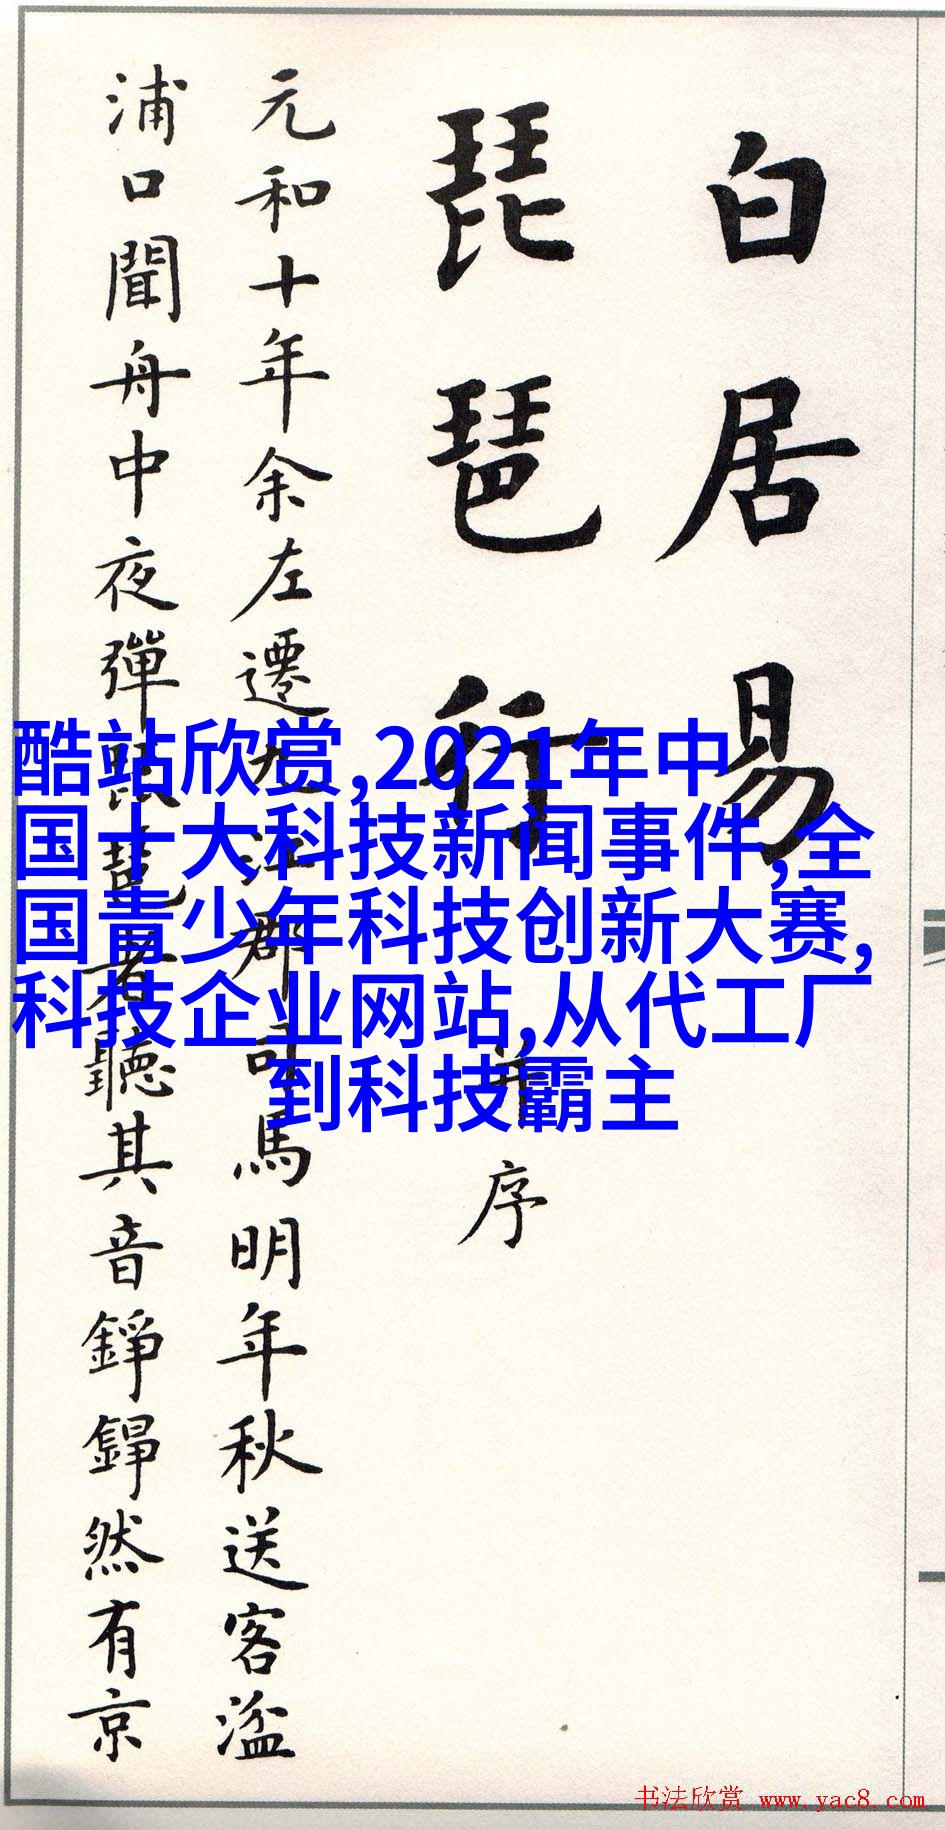 白居易
琵琶行 并序
元和十年余左遷九江郡司馬明年秋送客湓
浦口聞舟中夜彈琵琶者聽其音錚錚然有京
酷站欣赏,2021年中
国十大科技新闻事件,全
国青少年科技创新大赛,
科技企业网站,从代工厂
到科技霸主
书法欣赏 www.yac8.com